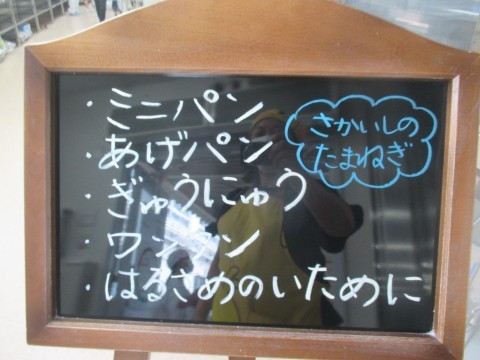 ・ミニパン
・あげパン
・ぎゅうにゅう
・ワンタン
・はるさめのいために
さかいしの
たまねぎ